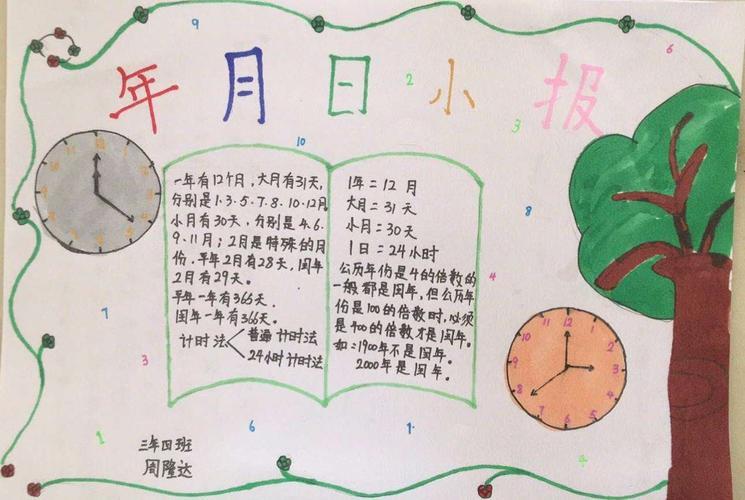 9
6
年月日小报
2
3
10
一年有12个月,大月有31天,
分别是1·3·5·7·8·10·12月
小月有30天,分别是4.6.
9·11月;2月是特殊的月
份,平年2月有28天,闰年
2月有29天。
平年一年有366天.
闰年一年有366天。
计时法
普通计时法
24小时计时法
1年=12月
大月=31天
小月=30天
1日=24小时
公历年份是4的倍数的
一般都是闰年,但公历年
份是100的倍数时,必须
是400的倍数才是闰年。
如:1900年不是闰年。
2000年是闰年。
8
4
7
3
11 12 1
10 2
9 3
8 4
7 6 5
1
6
1
4
三年四班
周隆达